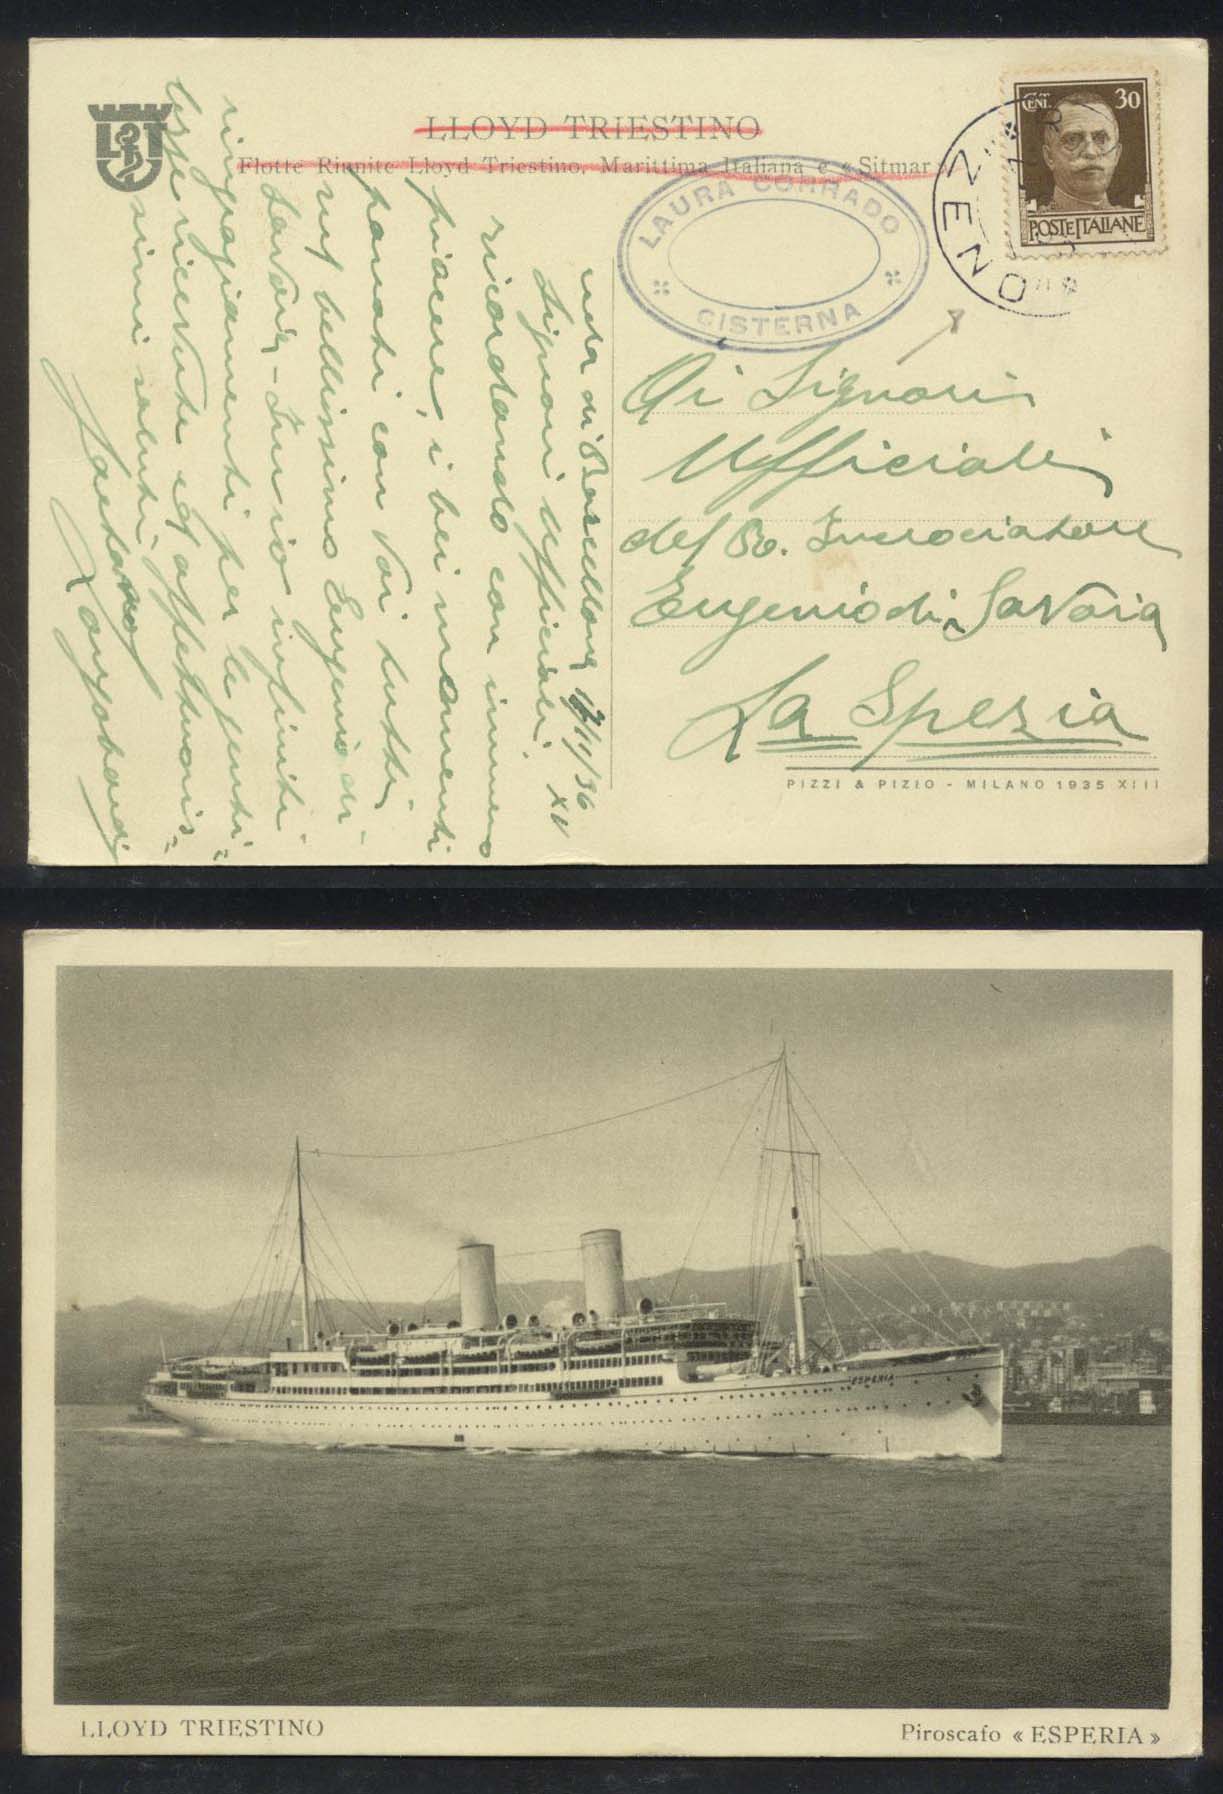 LT
LLOYD TRIESTINO
Flotte Riunite Lloyd Triestino, Marittima Italiana e « Sitmar »
CENT. 30
POSTE ITALIANE
LAURA CORRADO
CISTERNA
ZENO
Ai Signori
Ufficiali
del Ro. Incrociatore
Eugenio di Savoia
La Spezia
PIZZI & PIZIO - MILANO 1935 XIII
di Barcellona 17/11/36 XV
Signori Ufficiali,
ricordando con immenso
piacere, i bei momenti
passati con Voi tutti,
sul bellissimo Eugenio di
Savoia - Invio infiniti
ringraziamenti per le genti=
lezze ricevute ed affettuosis=
simi saluti.
Gaetano
LLOYD TRIESTINO
Piroscafo « ESPERIA »
ESPERIA